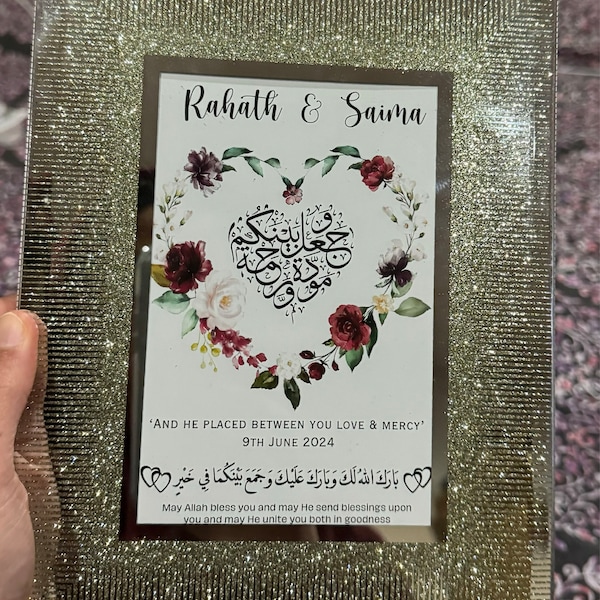 Rahath & Saima
وجعل بينكم مودة ورحمة
‘AND HE PLACED BETWEEN YOU LOVE & MERCY’
9TH JUNE 2024
بَارَكَ اللهُ لَكَ وَبَارَكَ عَلَيْكَ وَجَمَعَ بَيْنَكُمَا فِي خَيْرٍ
May Allah bless you and may He send blessings upon
you and may He unite you both in goodness